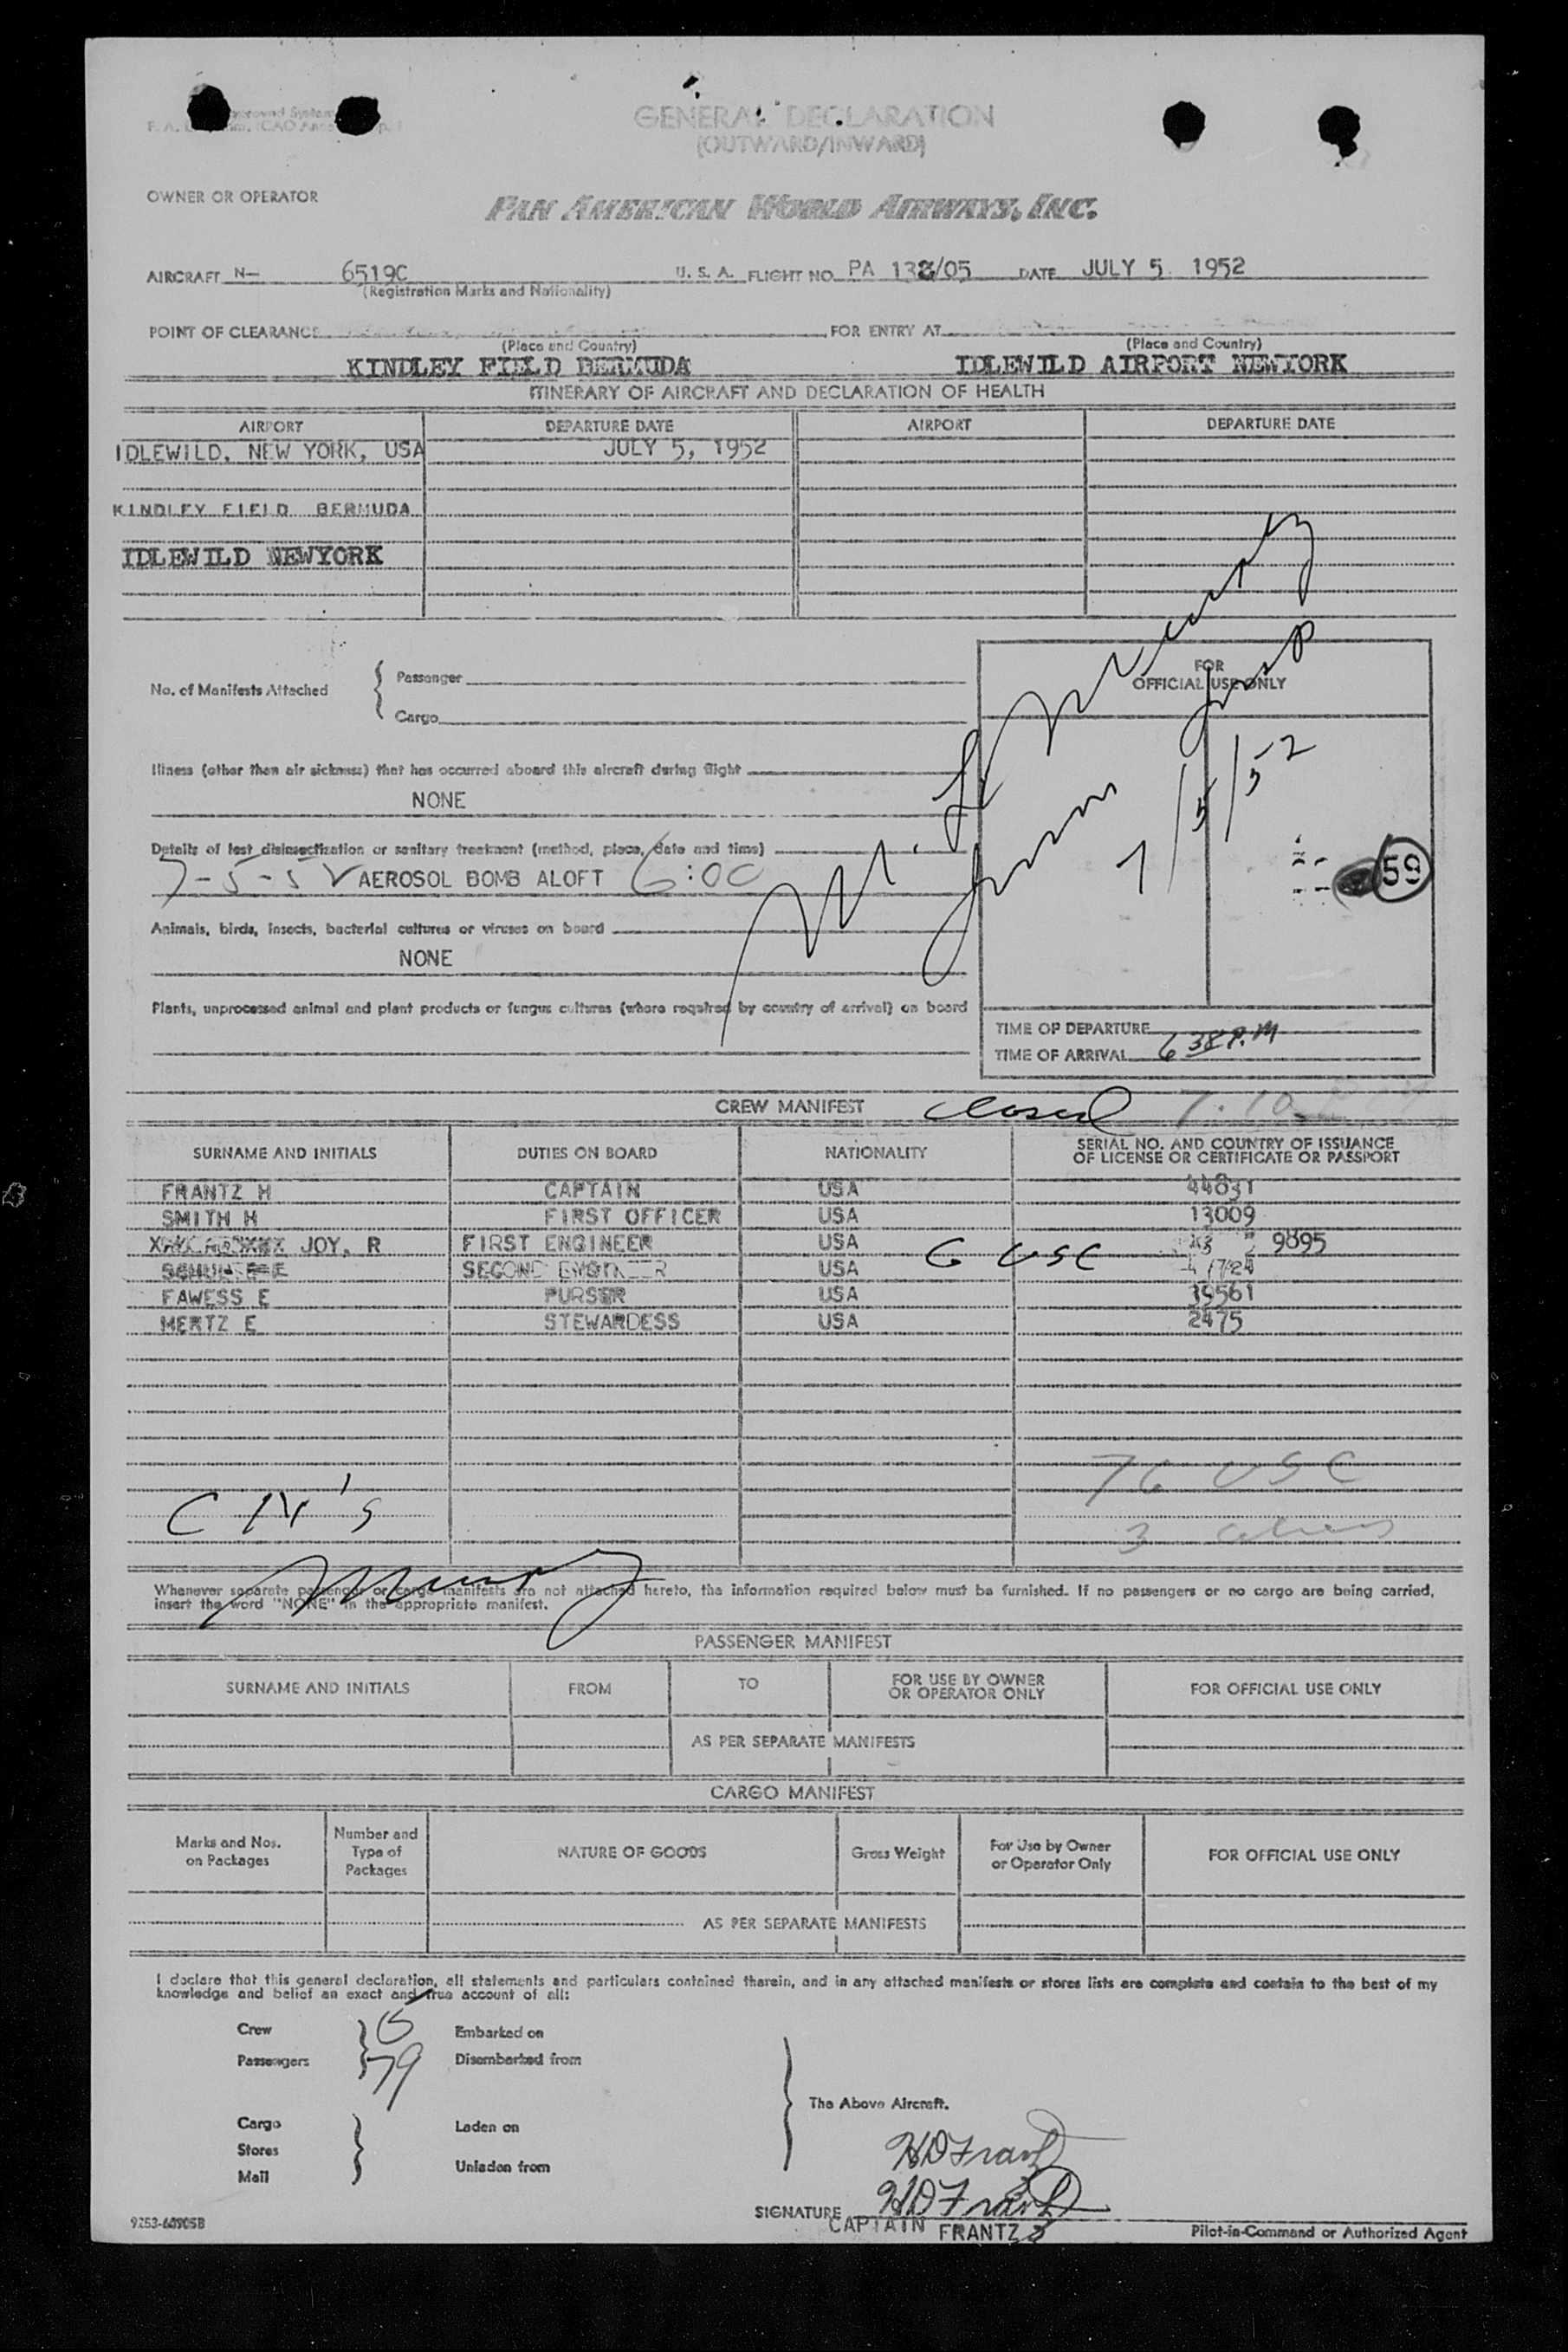 GENERAL DECLARATION
(OUTWARD/INWARD)
OWNER OR OPERATOR
PAN AMERICAN WORLD AIRWAYS, INC.
AIRCRAFT N- 6519C U. S. A. FLIGHT NO. PA 138/05 DATE JULY 5 1952
(Registration Marks and Nationality)
POINT OF CLEARANCE FOR ENTRY AT
(Place and Country) (Place and Country)
KINDLEY FIELD BERMUDA IDLEWILD AIRPORT NEWYORK
ITINERARY OF AIRCRAFT AND DECLARATION OF HEALTH
AIRPORT DEPARTURE DATE AIRPORT DEPARTURE DATE
IDLEWILD, NEW YORK, USA JULY 5, 1952
KINDLEY FIELD BERMUDA
IDLEWILD NEWYORK
No. of Manifests Attached
Passenger
Cargo
FOR
OFFICIAL USE ONLY
7/5/52
59
Illness (other than air sickness) that has occurred aboard this aircraft during flight
NONE
Details of last disinsectization or sanitary treatment (method, place, date and time)
7-5-52 AEROSOL BOMB ALOFT 6:00
Animals, birds, insects, bacterial cultures or viruses on board
NONE
Plants, unprocessed animal and plant products or fungus cultures (where required by country of arrival) on board
TIME OF DEPARTURE
TIME OF ARRIVAL 6 38 P.M
CREW MANIFEST closed 7:10
SURNAME AND INITIALS DUTIES ON BOARD NATIONALITY SERIAL NO. AND COUNTRY OF ISSUANCE
OF LICENSE OR CERTIFICATE OR PASSPORT
FRANTZ H CAPTAIN USA 44831
SMITH H FIRST OFFICER USA 13009
JOY, R FIRST ENGINEER USA 9895
SECOND ENGINEER USA
6 USC
FAWESS E PURSER USA 39561
MERTZ E STEWARDESS USA 2475
76 USC
3 aliens
Whenever separate passenger or cargo manifests are not attached hereto, the information required below must be furnished. If no passengers or no cargo are being carried,
insert the word "NONE" in the appropriate manifest.
PASSENGER MANIFEST
SURNAME AND INITIALS FROM TO FOR USE BY OWNER
OR OPERATOR ONLY FOR OFFICIAL USE ONLY
AS PER SEPARATE MANIFESTS
CARGO MANIFEST
Marks and Nos.
on Packages
Number and
Type of
Packages
NATURE OF GOODS
Gross Weight
For Use by Owner
or Operator Only
FOR OFFICIAL USE ONLY
AS PER SEPARATE MANIFESTS
I declare that this general declaration, all statements and particulars contained therein, and in any attached manifests or stores lists are complete and contain to the best of my
knowledge and belief an exact and true account of all:
Crew 6 Embarked on
Passengers 79 Disembarked from
The Above Aircraft.
Cargo Laden on
Stores
Mail Unladen from
HDFrantz
SIGNATURE HDFrantz
CAPTAIN FRANTZ
9253-60905B Pilot-in-Command or Authorized Agent